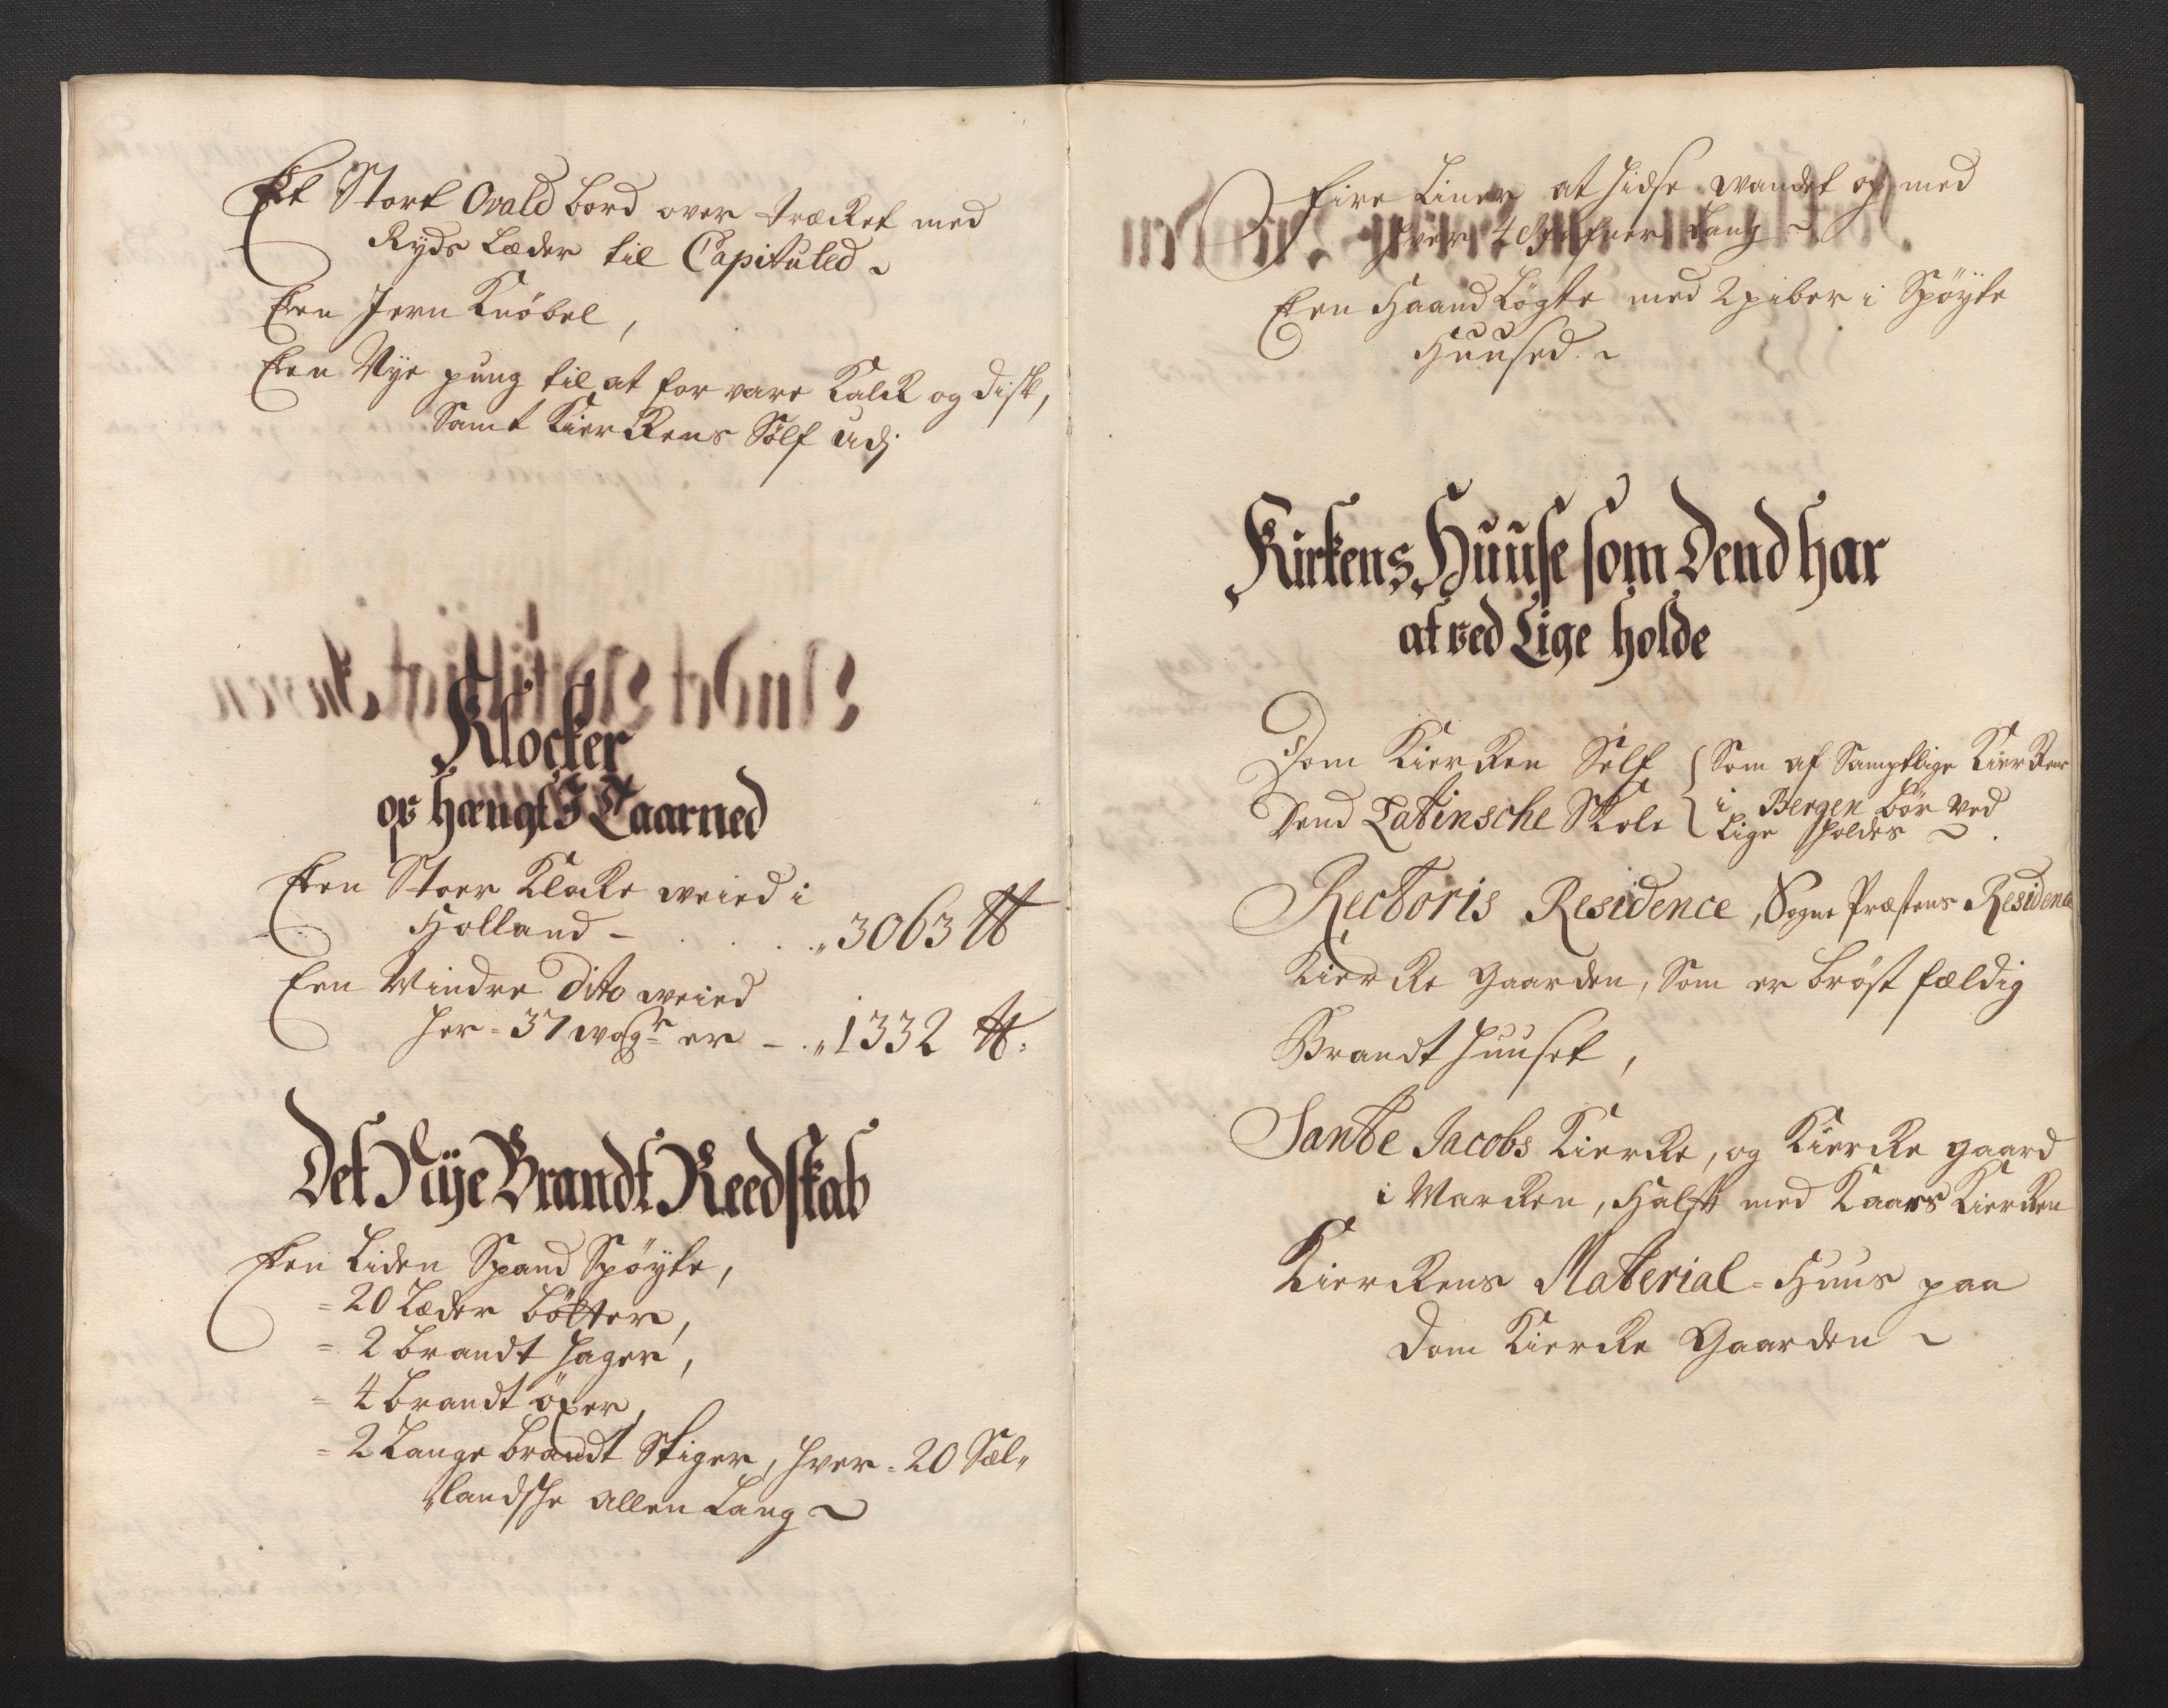 Et Stort Ovald bord over trecket med
Ryds Læder til Capituled
Een Jern Knöbel,
Een Nye pung til at for vare Kalck og disk,
Samt Kierckens Sölf udj
Klocker
op hængt I Taarned
Een Stoer Klocke weied i
Holland - . . . „ 3063 ℔
Een Mindre Dito weied
her = 37 wog^r er - . „ 1332 ℔:
Det Nÿe Brandt Reedskab
Een Liden Spand Spöyte,
= 20 Læder bötter,
= 2 brandt hager,
= 4 brandt öxer,
= 2 Lange brandt Stiger, hver = 20 Sæl„
„landske allen Lang
Fire Liner at hidse wandet op med
hver 4 fafner Lang
Een Haand Lögte med 2 piber i Spöyte
Huused.
Kirkens Huuse som Dend har
at ved Lige holde
Dom Kiercken Self { Som af Samptlige Kiercker
Dend Latinsche Skole { i Bergen bör ved
Lige holdes
Rectoris Residence, Sogne Præstens Residence
Kiercke Gaarden, Som er bröst fældig
Brandt huuset,
Sancte Jacobs Kiercke, og Kiercke gaard
i Marcken, Halft med Kaars Kiercken
Kierckens Material = Huus paa
Dom Kiercke Gaarden